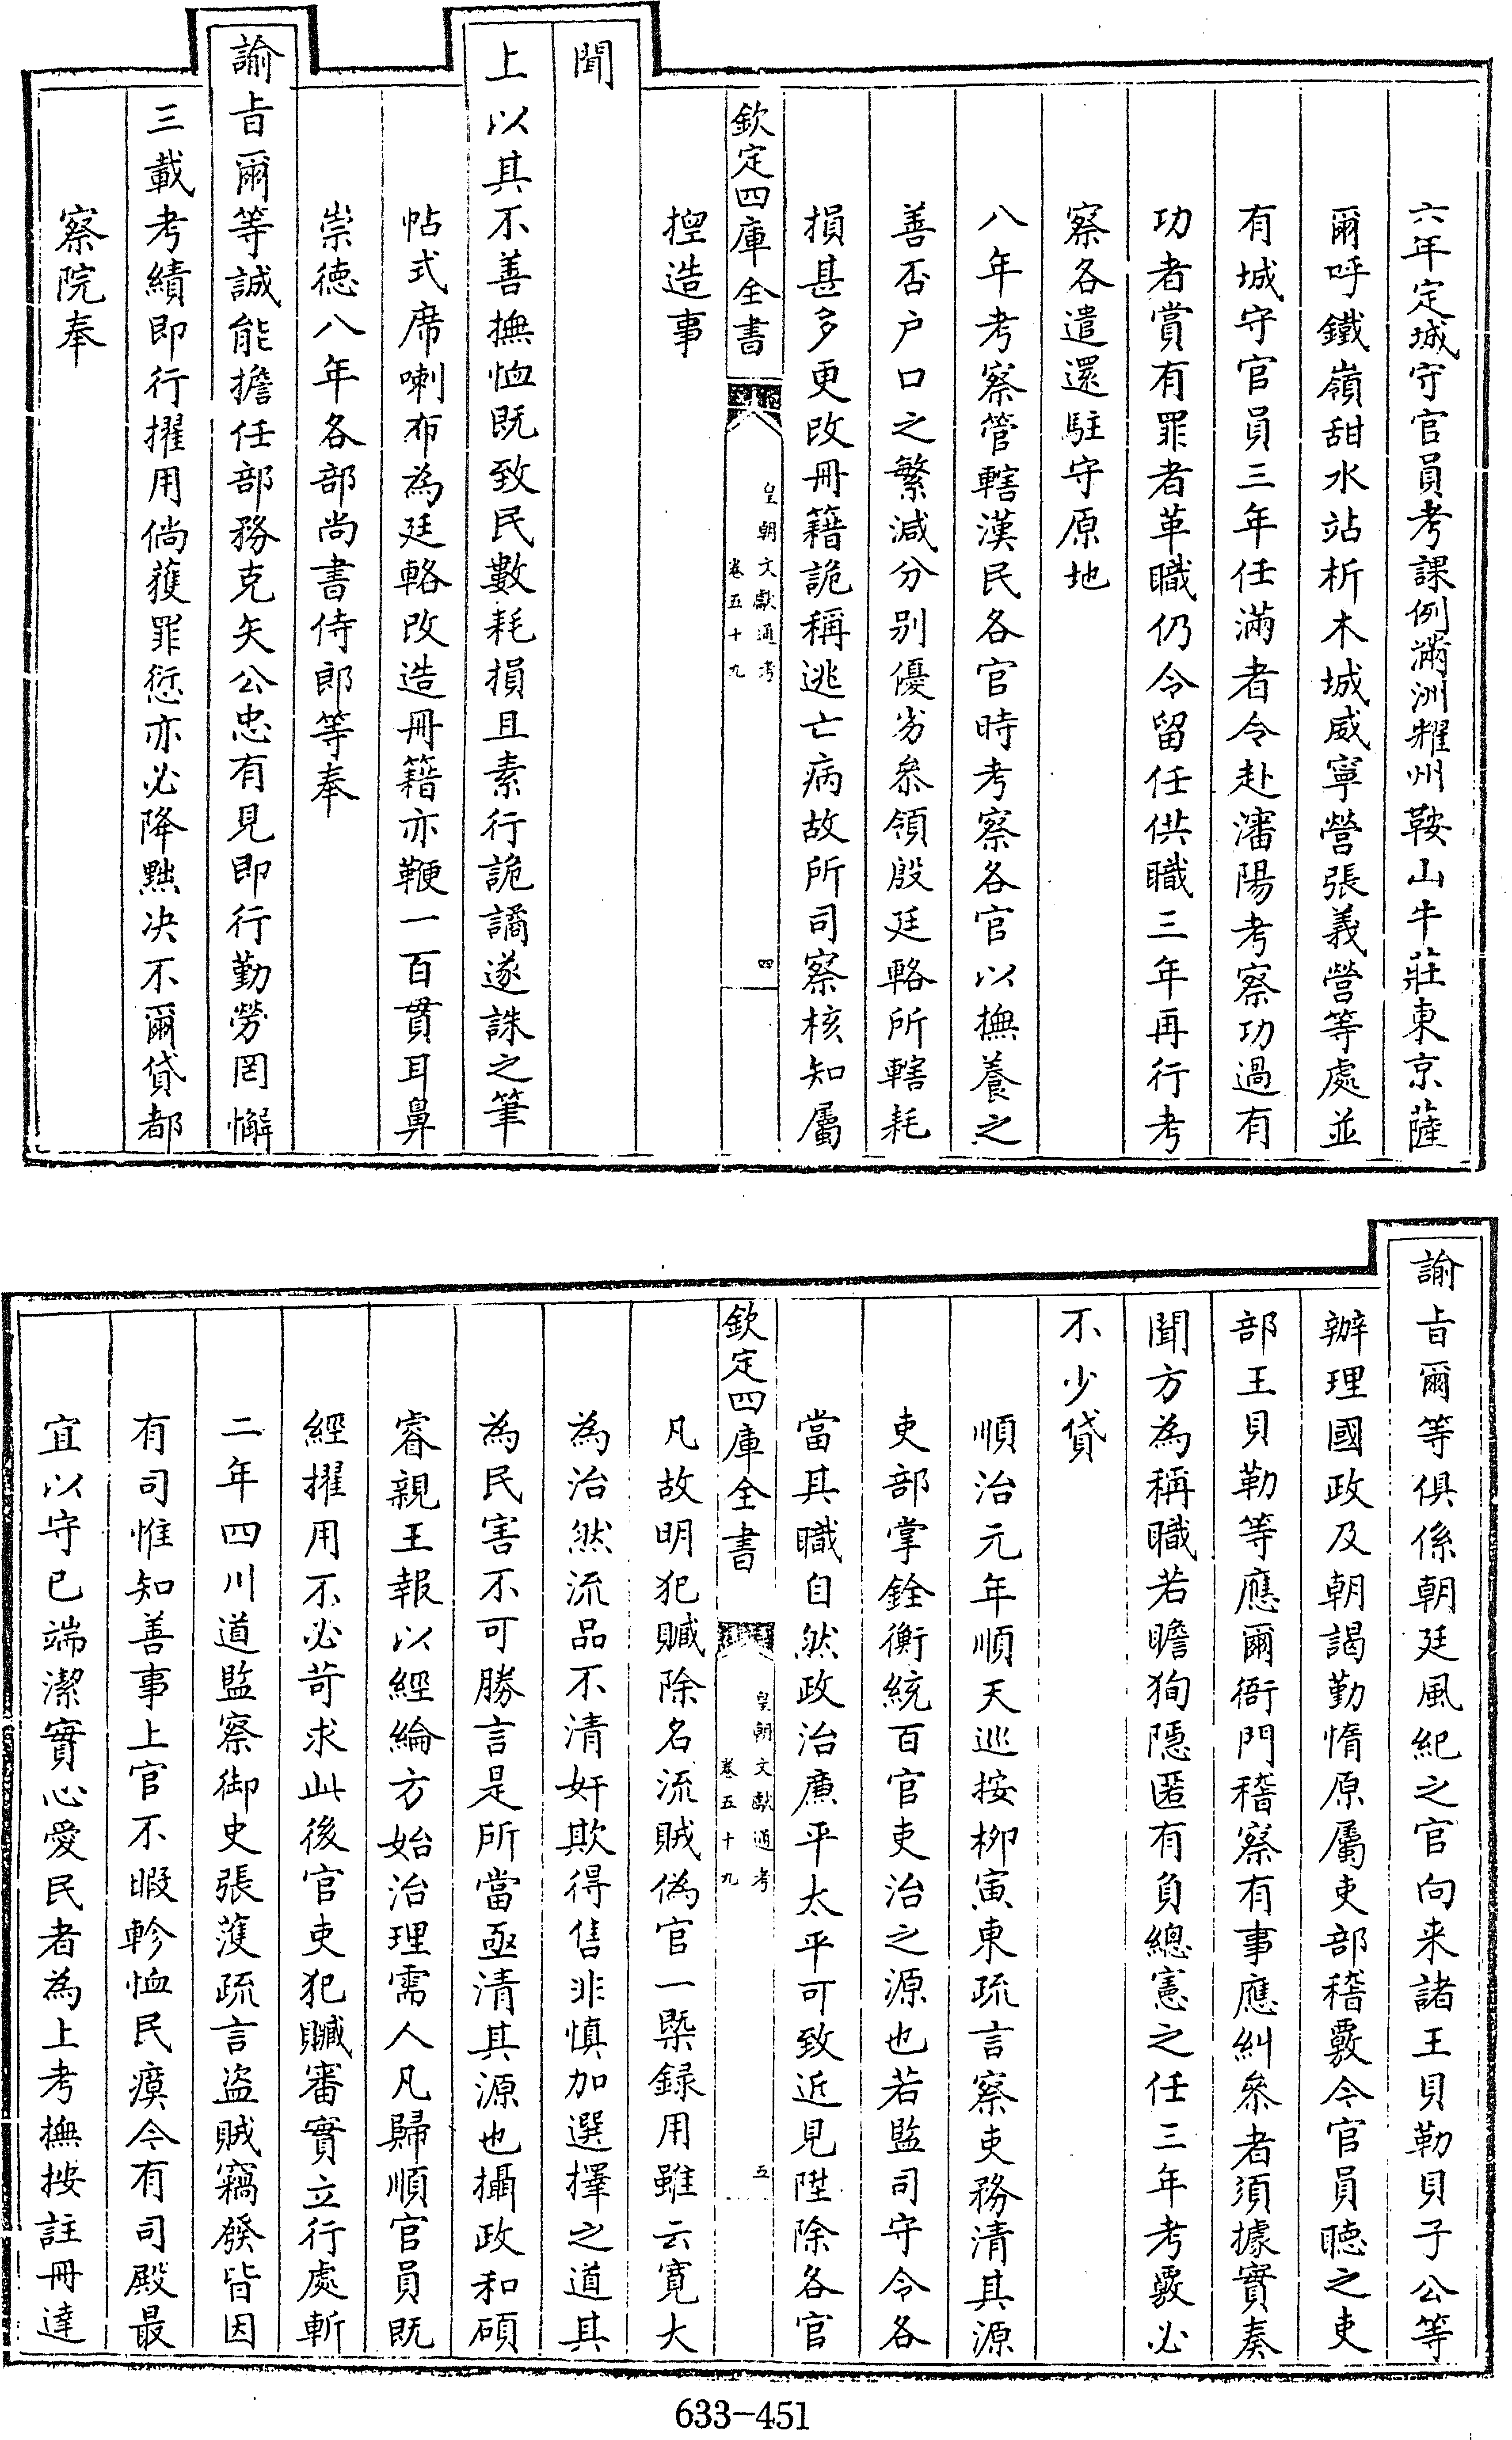 六年定城守官員考課例滿洲耀州鞍山牛莊東京薩
爾呼鐵嶺甜水站析木城威寧營張義營等處並
有城守官員三年任滿者令赴瀋陽考察功過有
功者賞有罪者革職仍令留任供職三年再行考
察各遣還駐守原地
八年考察管轄漢民各官時考察各官以撫養之
善否户口之繁減分别優劣叅領殷廷輅所轄耗
損甚多更改冊籍詭稱逃亡病故所司察核知屬
欽定四庫全書
皇朝文獻通考
卷五十九
四
揑造事
聞
上以其不善撫恤既致民數耗損且素行詭譎遂誅之筆
帖式席喇布為廷輅改造冊籍亦鞭一百貫耳鼻
崇德八年各部尚書侍郎等奉
諭㫖爾等誠能擔任部務克矢公忠有見即行勤勞罔懈
三載考績即行擢用倘獲罪愆亦必降黜决不爾貸都
察院奉
諭㫖爾等俱係朝廷風紀之官向来諸王貝勒貝子公等
辦理國政及朝謁勤惰原屬吏部稽覈今官員聴之吏
部王貝勒等應爾衙門稽察有事應糾叅者須據實奏
聞方為稱職若瞻狥隠匿有負總憲之任三年考覈必
不少貸
順治元年順天巡按栁寅東疏言察吏務清其源
吏部掌銓衡統百官吏治之源也若監司守令各
當其職自然政治廉平太平可致近見陞除各官
欽定四庫全書
皇朝文獻通考
卷五十九
五
凡故明犯贓除名流賊偽官一槩録用雖云寛大
為治然流品不清奸欺得售非慎加選擇之道其
為民害不可勝言是所當亟清其源也攝政和碩
睿親王報以經綸方始治理需人凡歸順官員既
經擢用不必苛求此後官吏犯贓審實立行處斬
二年四川道監察御史張濩疏言盗賊竊發皆因
有司惟知善事上官不暇軫恤民瘼今有司殿最
宜以守已端潔實心愛民者為上考撫按註冊達
633-451